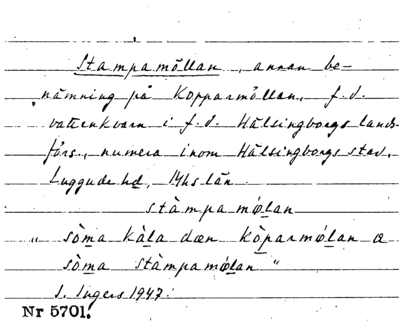 Stampamöllan, annan be-
nämning på Kopparmöllan, f.d.
vattenkvarn i f.d. Hälsingborgs lands-
förs., numera inom Hälsingborgs stad,
Luggude hd, Mhs län.
stàmpamø̀lan
" sòma kàla dæn kòparmø̀lan a
sòma stàmpamø̀lan "
I. Ingers 1947.
Nr 5701.